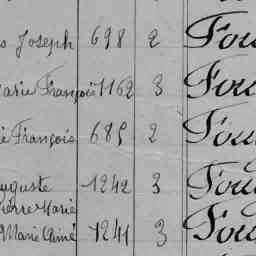 s Joseph 698 2 Fou
arie François 1162 3 Fou
é François 685 2 Fou
uguste 1242 3 Fou
Pierre Marie
Marie Aimé 1241 3 Fou